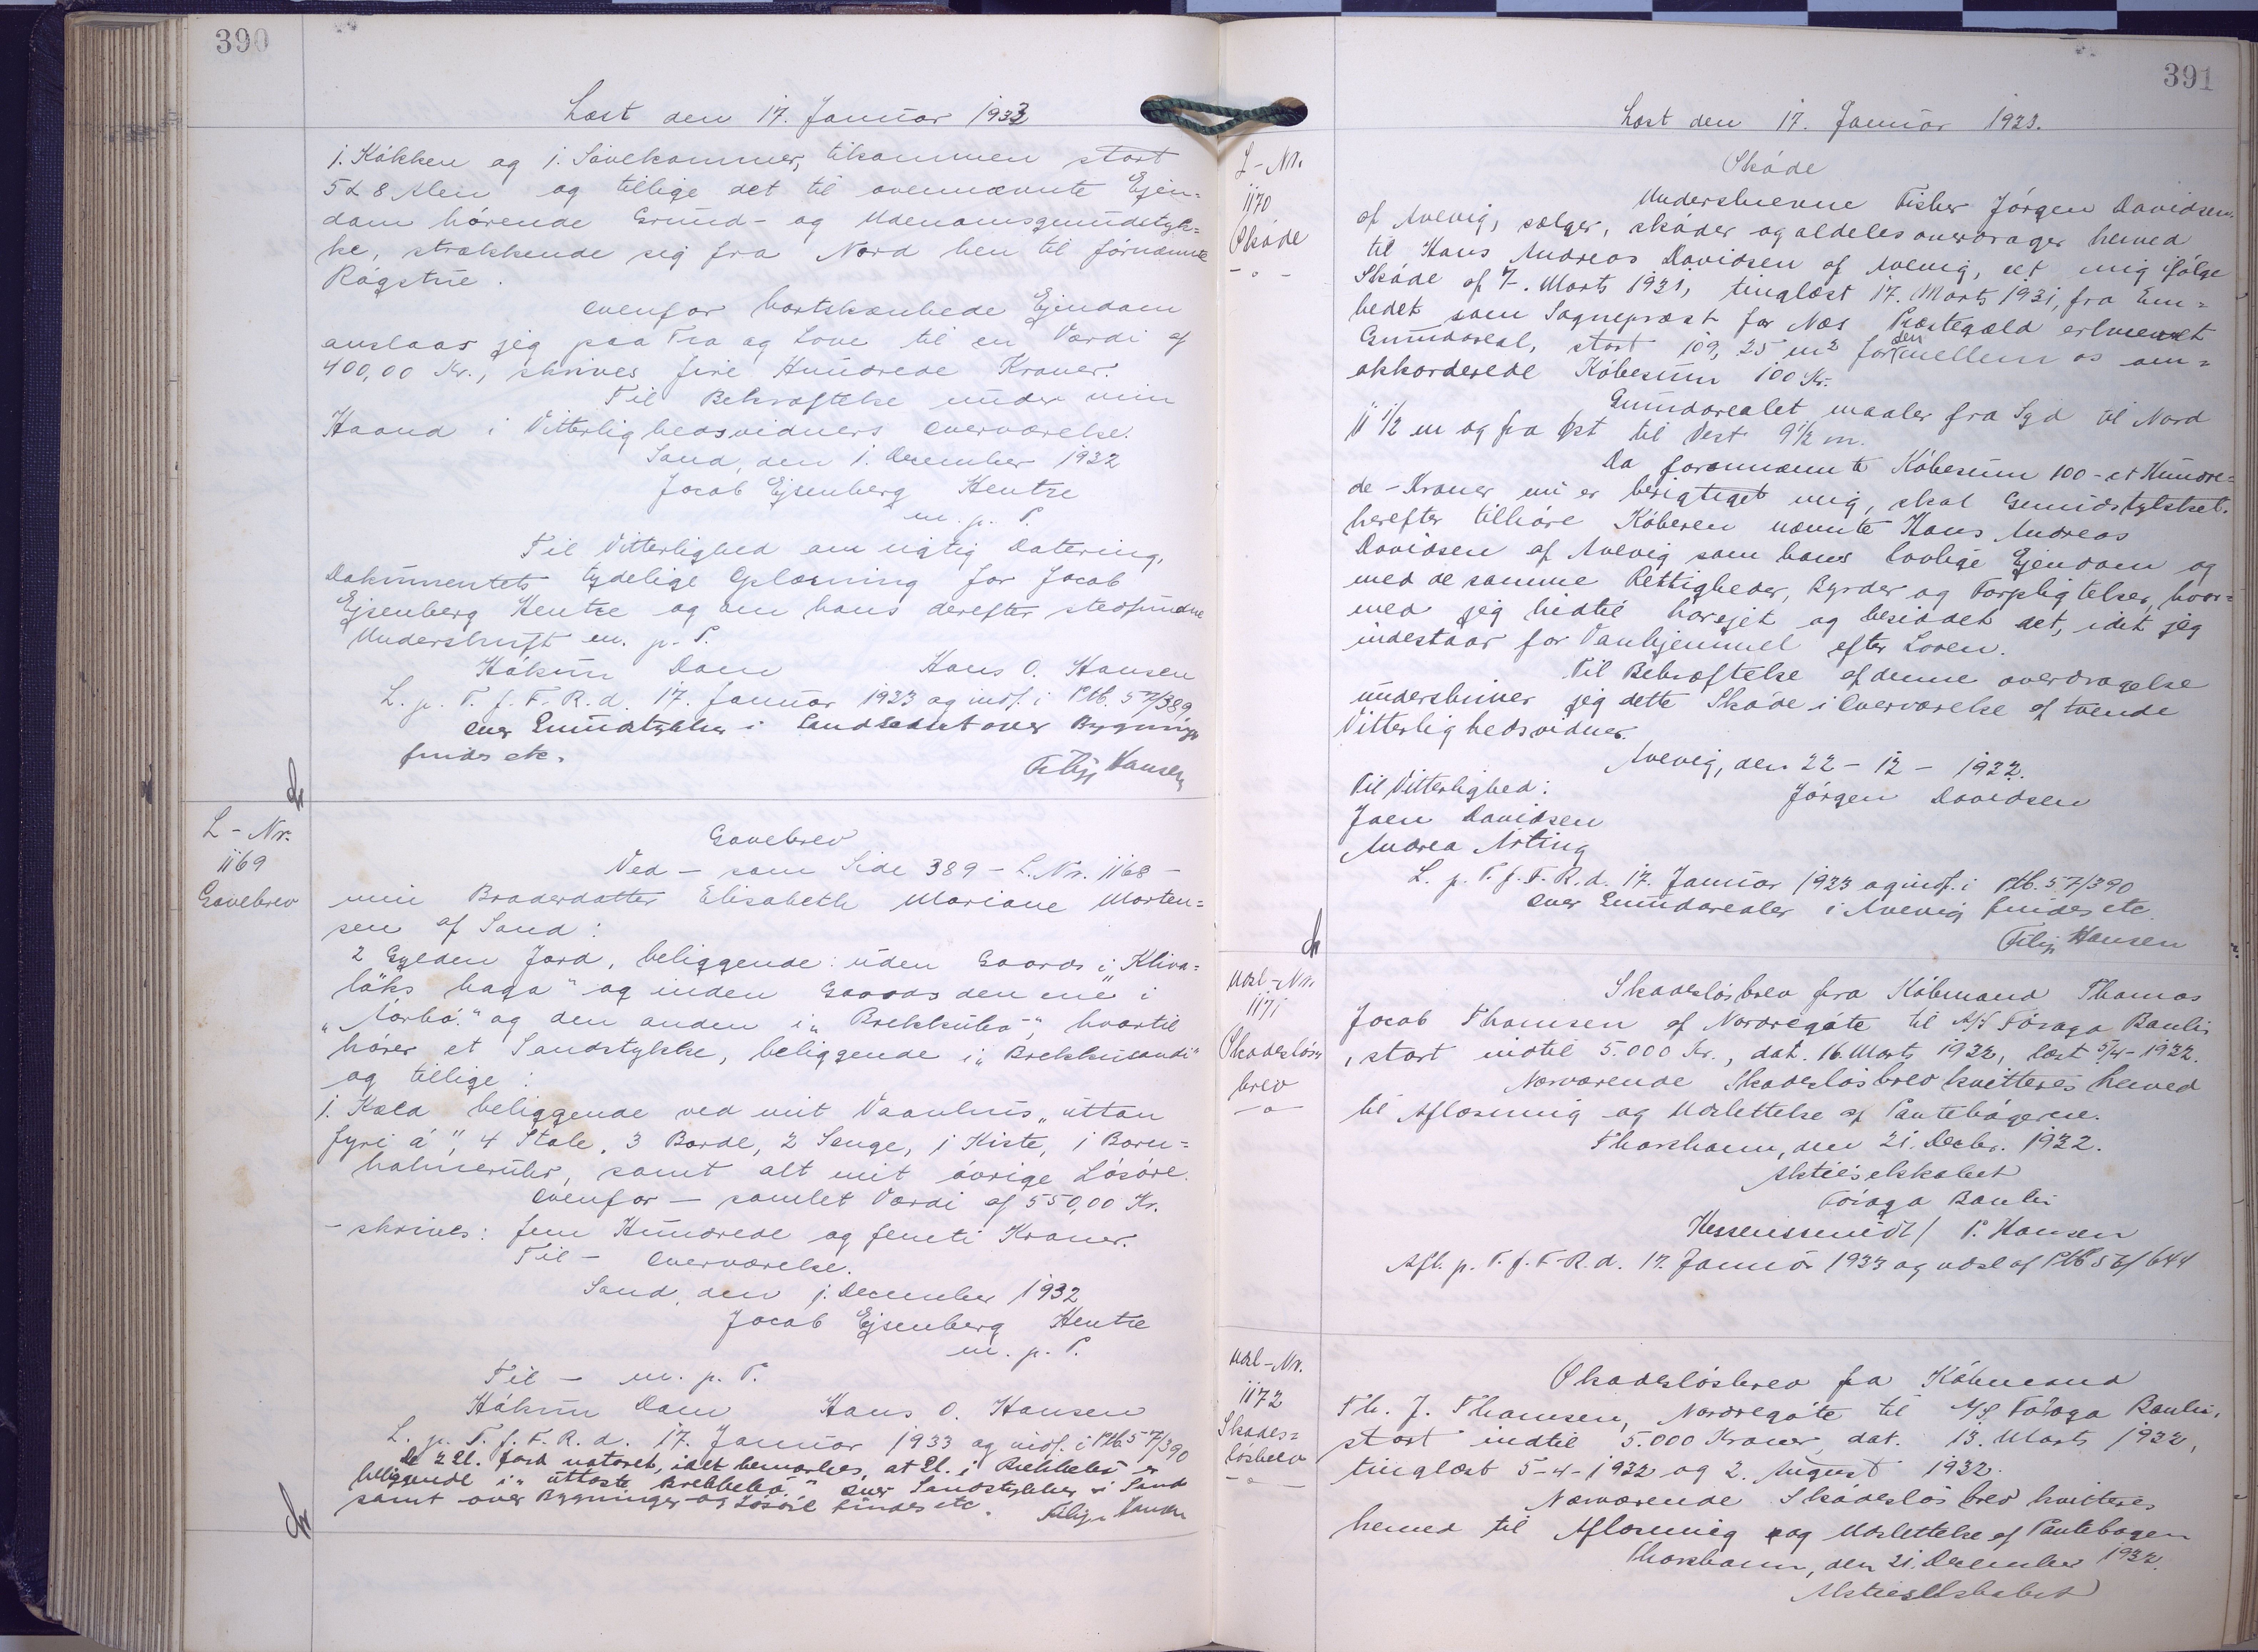 390
Læst den 17. Januar 1933
1. Kökken og 1. Sovekammer, tilsammen stort
5 x 8 Alen og tillige det til ovennævnte Ejen=
dom hörende Grund- og Udenomsgrundstyk=
ke, strækkende sig fra Nord hen til förnævnte
Rögstue.
Ovenfor bortskænkede Ejendom
anslaas jeg paa Tro og Love til en Værdi af
400,00 Kr., skrives fire Hundrede Kroner.
Til Bekræftelse under min
Haand i Vitterlighedsvidners Overværelse.
Sand, den 1. December 1932
Jacob Ejsenberg Hentze
m. p. P.
Til Vitterlighed om rigtig Datering,
Dokumentets tydelige Oplæsning for Jacob
Ejsenberg Hentze og om hans derefter stedfundne
Underskrift m. p. P.
Hákun Dam Hans O. Hansen
L. p. T. f. F. R. d. 17. Januar 1933 og indf. i Ptb. 57/389
Over Grundstykker i Landsbset over Bygninger
findes etc.
Filip Hansen
L-Nr.
1169
Gavebrev
Gavebrev
Ved - som Side 389 - L. Nr. 1168 -
min Broderdatter Elisabeth Mariane Morten=
sen af Sand:
2 Gylden Jord, beliggende: uden Gaards i „Kliva=
löks haga" og inden Gaards den ene i
„Nörbö" og den anden i „Brekkubö", hvortil
hörer et Sandstykke, beliggende i „Brekkusandi"
og tillige:
1. Kæld beliggende ved mit Vaanhus „uttan
fyri á", 4 Stole, 3 Borde, 2 Senge, 1 Kiste, 1 Born=
holmeruhr, samt alt mit övrige Lösöre.
Ovenfor - samlet Værdi af 550,00 Kr.
- skrives: fem Hundrede og femti Kroner.
Til - Overværelse.
Sand, den 1. December 1932
Jacob Ejsenberg Hentze
m. p. P.
Til - m. p. P.
Hákun Dam Hans O. Hansen
L. p. T. f. F. R. d. 17. Januar 1933 og indf. i Ptb. 57/390
De 2 Gl. Jord noteret, idet bemærkes, at Gl. i Brekkubö er
beliggende i „uttaste Brekkubö". Over Sandstykker i Sand
samt over Bygninger og Lösöre findes etc. Filip Hansen
391
Læst den 17. Januar 1933.
L-Nr.
1170
Sköde
Sköde
Underskrevne Fisker Jörgen Davidsen
af Avevig, sælger, sköder og aldeles overdrager herved
til Hans Andreas Davidsen af Avevig, det mig ifölge
Sköde af 7. Marts 1931, tinglæst 17. Marts 1931, fra Em=
bedet som Sognepræst for Næs Præstegæld erhvervet
Grundareal, stort 109,25 m2 for den mellem os om=
akkorderede Köbesum 100 Kr.
Grundarealet maaler fra Syd til Nord
11 1/2 m og fra Øst til Vest 9 1/2 m.
Da forannævnte Köbesum 100 - et Hundre=
de - Kroner nu er berigtiget mig, skal Grundstykket
herefter tilhöre Köberen nævnte Hans Andreas
Davidsen af Avevig som hans lovlige Ejendom og
med de samme Rettigheder, Byrder og Forpligtelser, hvor=
med jeg hidtil har ejet og besiddet det, idet jeg
indestaar for Vanhjemmel efter Loven.
Til Bekræftelse af denne Overdragelse
underskriver jeg dette Sköde i Overværelse af tvende
Vitterlighedsvidner.
Avevig, den 22 - 12 - 1932.
Til Vitterlighed: Jörgen Davidsen
Joen Davidsen
Andrea Arting
L. p. T. f. F. R. d. 17. Januar 1933 og indf. i Ptb. 57/390
Over Grundarealer i Avevig findes etc.
Filip Hansen
Udsl-Nr.
1171
Skadeslös
brev
Skadeslösbrev fra Köbmand Thomas
Jacob Thomsen af Nordregöte til A/S Föroya Banki
, stort indtil 5.000 Kr., dat. 16. Marts 1932, læst 5/4-1932.
Nærværende Skadeslösbrev kvitteres herved
til Aflæsning og Udslettelse af Pantebögerne.
Thorshavn, den 21. Decbr. 1932.
Aktieselskabet
Föroya Banki
Kessenssmidt / P. Hansen
Afl. p. T. f. F. R. d. 17. Januar 1933 og udsl. af Ptb. 56/644
Udsl-Nr.
1172
Skades=
lösbrev
Skadeslösbrev fra Köbmand
Th. J. Thomsen, Nordregöte til A/S Föroya Banki,
stort indtil 5.000 Kroner, dat. 13. Marts 1932,
tinglæst 5-4-1932 og 2. August 1932.
Nærværende Skadeslösbrev kvitteres
herved til Aflæsning og Udslettelse af Pantebogen
Thorshavn, den 21. December 1932.
Aktieselskabet